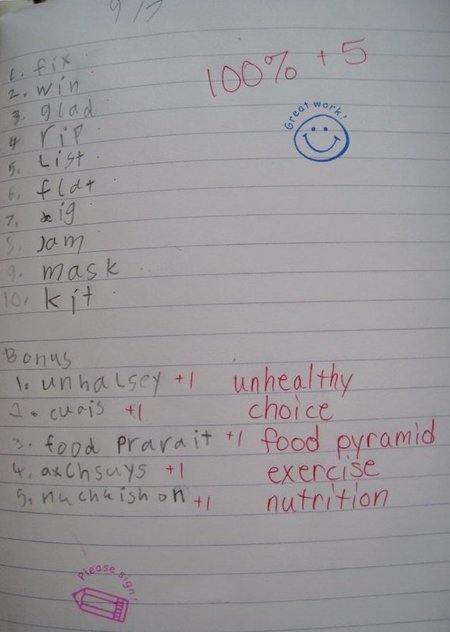 9/7
100% + 5
Great work!
1. fix
2. win
3. glad
4 rip
5. List
6. flat
7. zig
8. Jam
9. mask
10. kit
Bonus
1. unhalsey +1 unhealthy
2. cuois +1 choice
3. food prarait +1 food pyramid
4. axchsuys +1 exercise
5. nuchuishon +1 nutrition
Please sign!